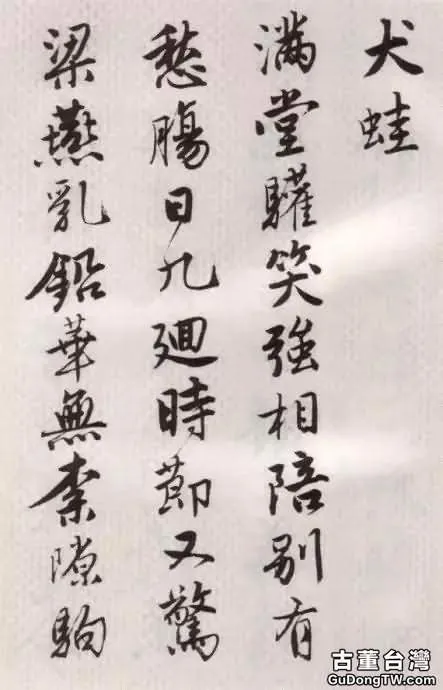 犬蛙
滿堂驩笑強相陪别有
愁腸日九廻時節又驚
梁燕乳鉛華無柰隙駒
古董台灣
GuDongTW.com